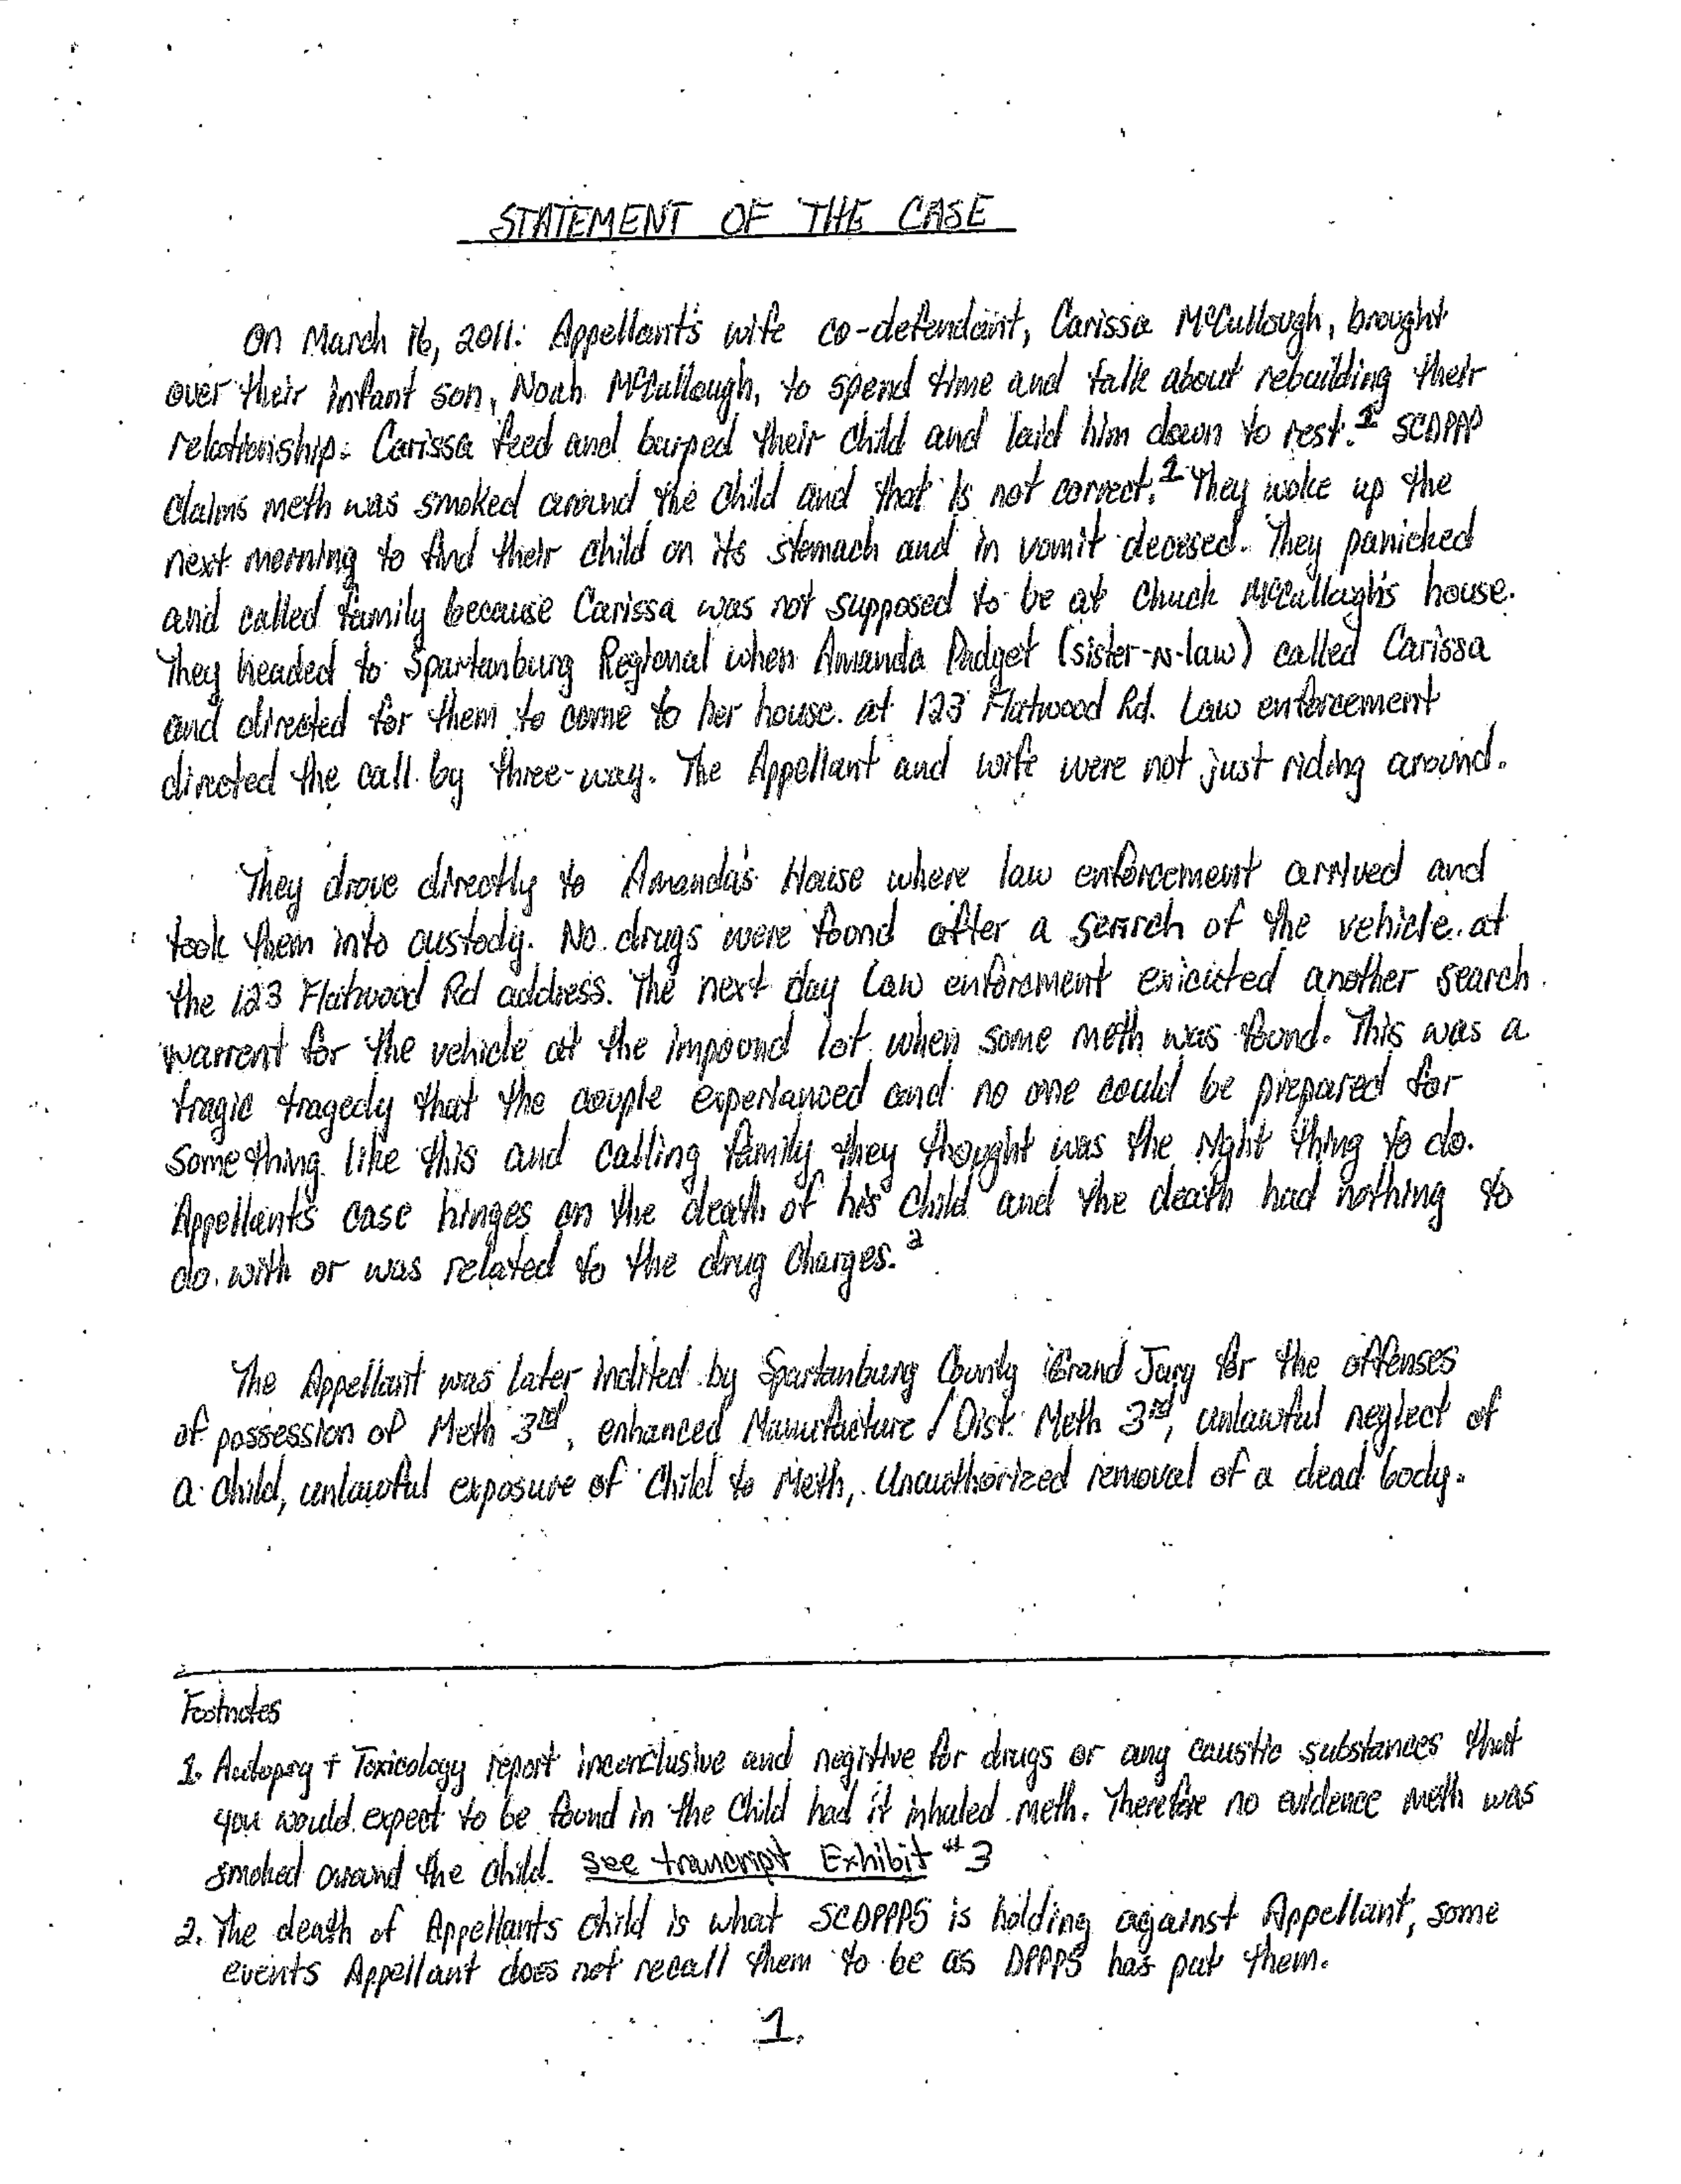 STATEMENT OF THE CASE
On March 16, 2011: Appellant's wife co-defendant, Carissa McCullough, brought
over their infant son, Noah McCullough, to spend time and talk about rebuilding their
relationship. Carissa feed and burped their child and laid him down to rest.1 SCDPPP
claims meth was smoked around the child and that is not correct.1 They woke up the
next morning to find their child on its stomach and in vomit decesed. They panicked
and called family because Carissa was not supposed to be at Chuck McCullough's house.
They headed to Spartanburg Regional when Amanda Padget (sister-n-law) called Carissa
and directed for them to come to her house. at 123 Flatwood Rd. Law enforcement
directed the call by three-way. The Appellant and wife were not just riding around.
They drove directly to Amanda's House where law enforcement arrived and
took them into custody. No drugs were found after a search of the vehicle at
the 123 Flatwood Rd address. The next day Law enforcment exicuted another search
warrent for the vehicle at the impound lot when some meth was found. This was a
tragic tragedy that the couple experianced and no one could be prepared for
something like this and calling family they thought was the right thing to do.
Appellant's case hinges on the death of his child and the death had nothing to
do with or was related to the drug charges.2
The Appellant was later indited by Spartanburg County Grand Jury for the offenses
of possession of Meth 3rd, enhanced Manufacture / Dist. Meth 3rd, unlawful neglect of
a child, unlawful exposure of Child to Meth, Unauthorized removal of a dead body.
Footnotes
1. Autopsy + Toxicology report inconclusive and negitive for drugs or any caustic substances that
you would expect to be found in the Child had it inhaled meth. Therefore no evidence meth was
smoked around the child. see trancript Exhibit #3
2. The death of Appellants child is what SCDPPPS is holding against Appellant, some
events Appellant does not recall them to be as DPPPS has put them.
1.